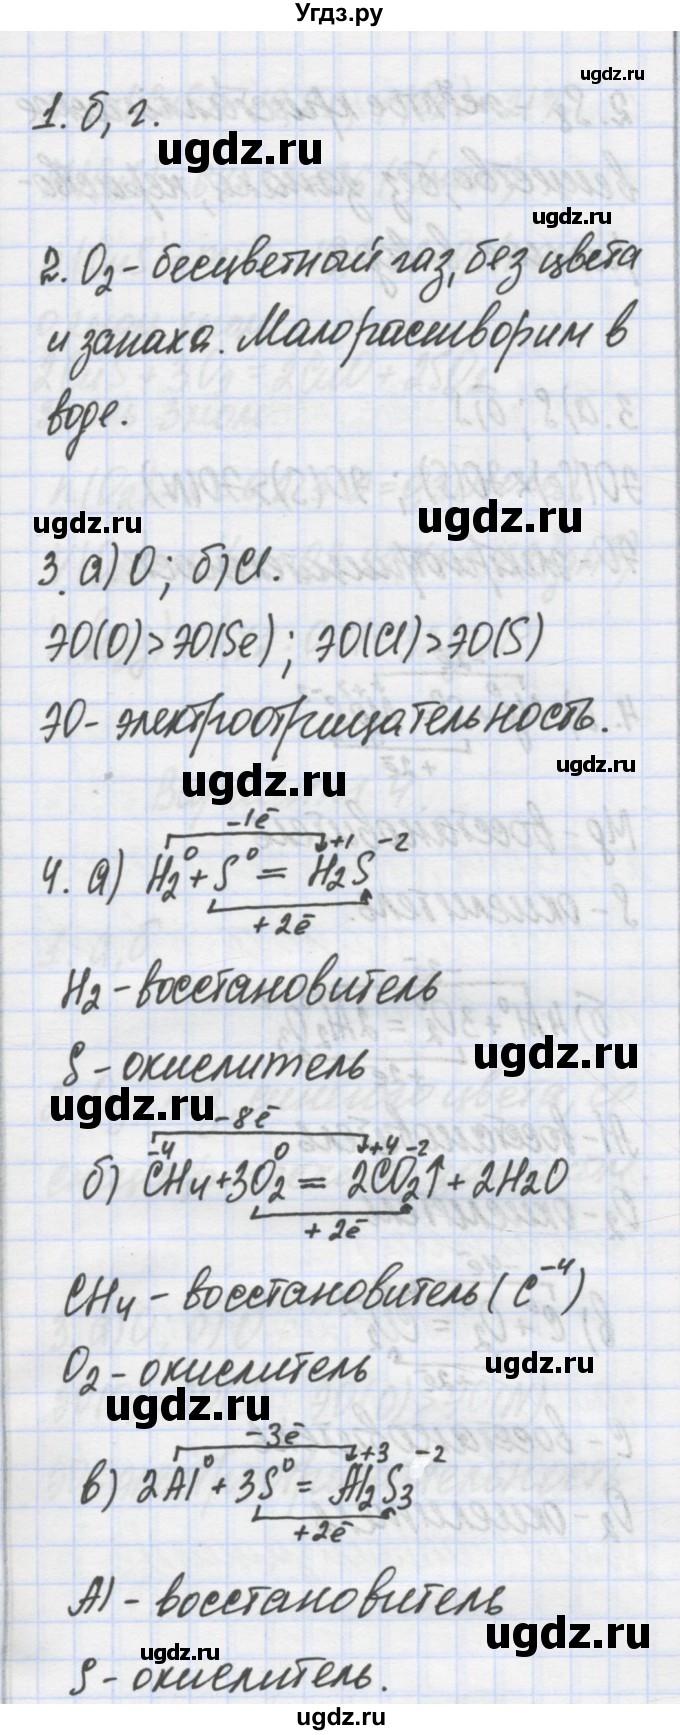 Угдз.ру
ugdz.ru
1. б, г.
ugdz.ru
ugdz.ru
2. O₂ - бесцветный газ, без цвета
и запаха. Малорастворим в
воде.
ugdz.ru
ugdz.ru
3. а) O; б) Cl.
ЭО(O) > ЭО(Se); ЭО(Cl) > ЭО(S)
ЭО - электроотрицательность.
ugdz.ru
ugdz.ru
-1ē
4. а) H₂⁰ + S⁰ = H₂⁺¹S⁻²
+2ē
H₂ - восстановитель
ugdz.ru
S - окислитель
ugdz.ru
-8ē
б) C⁻⁴H₄ + 3O₂⁰ = 2C⁺⁴O₂⁻²↑ + 2H₂O
+2ē
CH₄ - восстановитель (C⁻⁴)
ugdz.ru
O₂ - окислитель
ugdz.ru
-3ē
в) 2Al⁰ + 3S⁰ = Al₂⁺³S₃⁻²
+2ē
Al - восстановитель
ugdz.ru
ugdz.ru
S - окислитель.
ugdz.ru